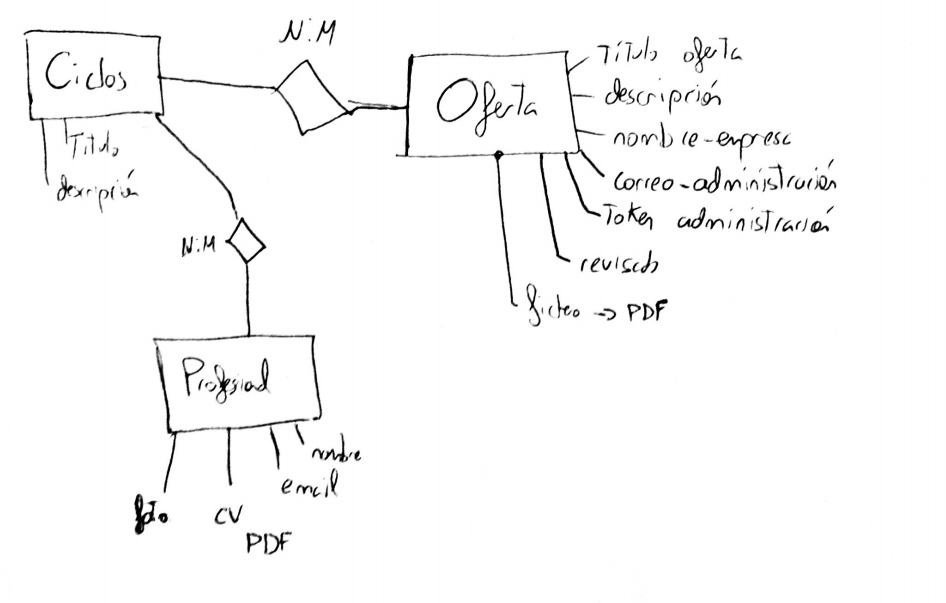 N:M
Ciclos
Título
descripción
Oferta
Título oferta
descripción
nombre-empresa
correo-administración
Token administración
revisado
fichero -> PDF
N:M
Profesional
foto
CV
PDF
email
nombre